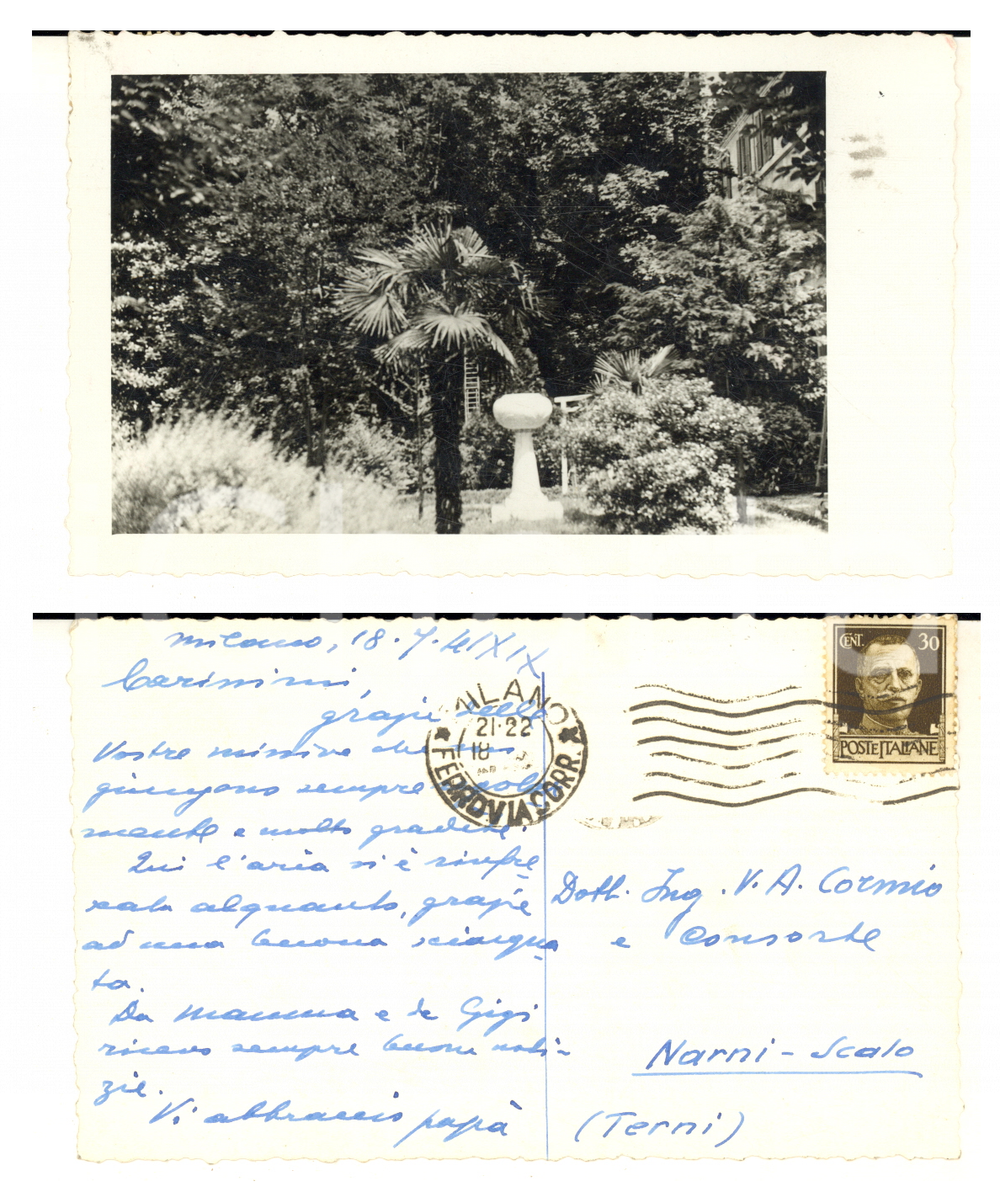 Milano, 18.7.41 XIX
Carissimi,
grazie delle
Vostre missive che
giungono sempre
mente e molto gradite.
Qui l'aria si è rinfre
scata alquanto, grazie
ad una buona sciacqua
ta.
Da mamma e da Gigi
ricevo sempre buone noti-
zie.
Vi abbraccio papà
MILANO
21-22
18
FERROVIA CORR.
CENT. 30
POSTE ITALIANE
Dott. Ing. V. A. Cormio
e consorte
Narni - Scalo
(Terni)